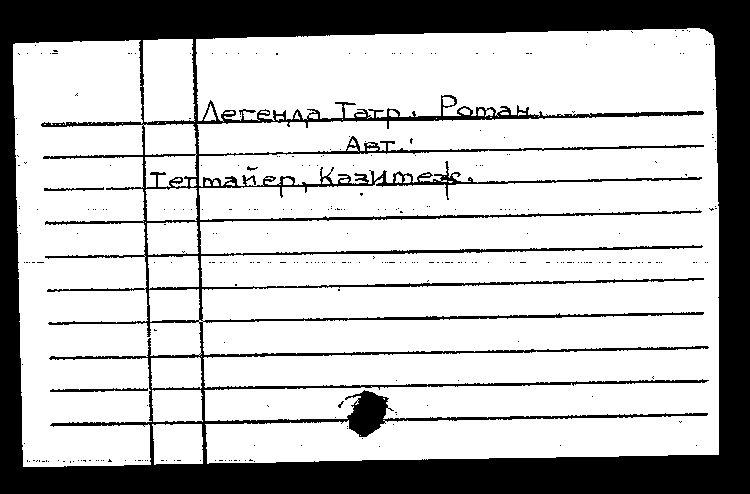 Легенда Татр. Роман.
Авт.:
Тетмайер, Казимеж.